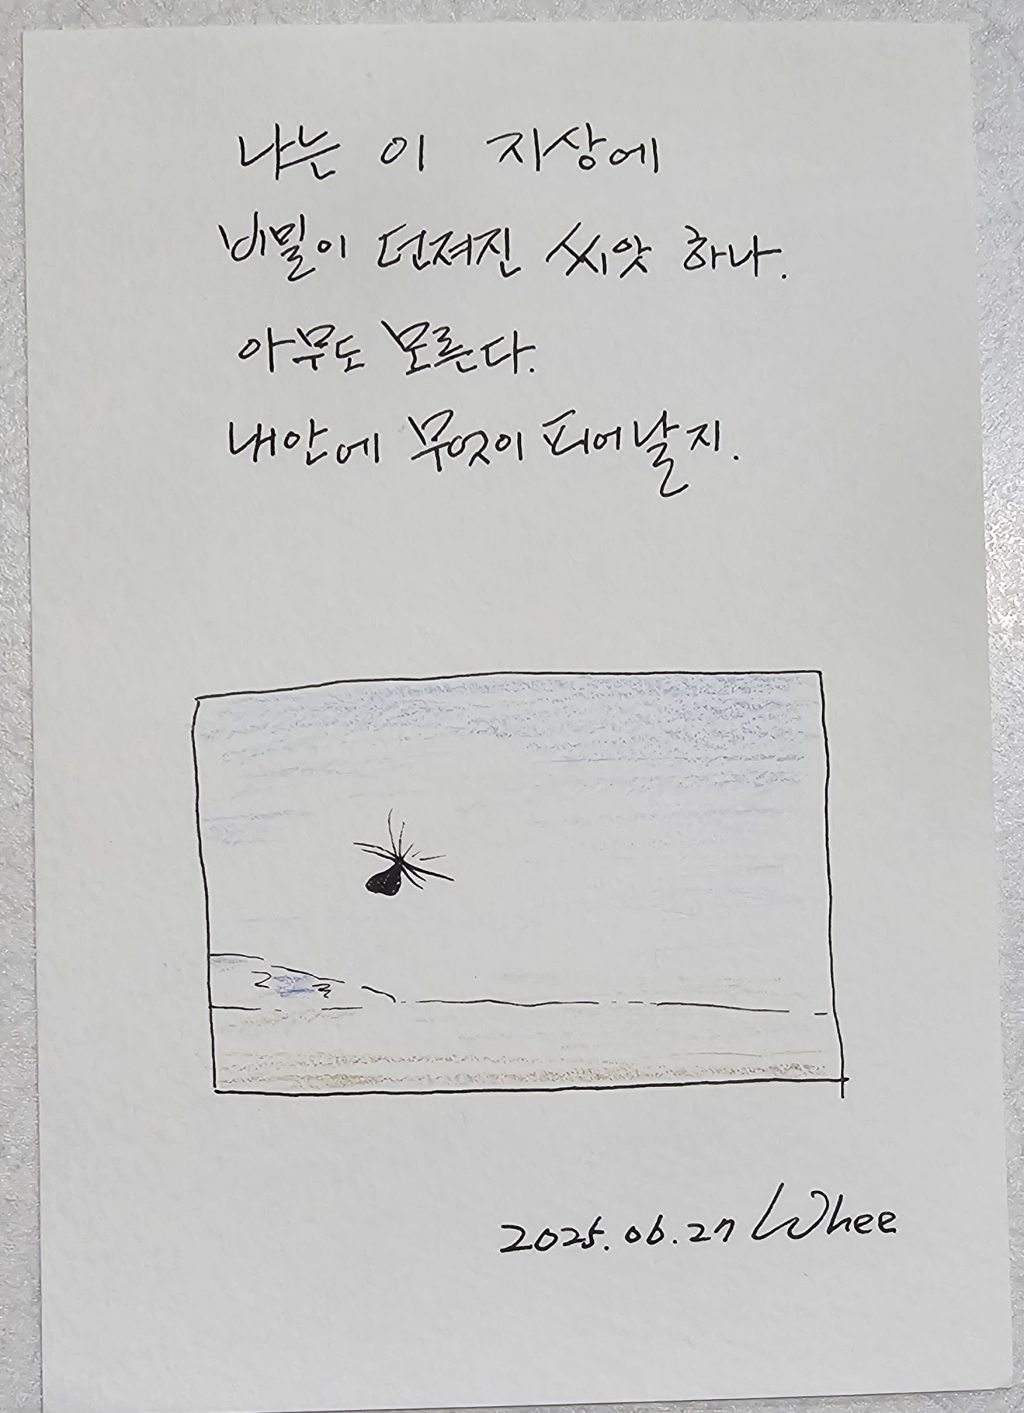 나는 이 지상에
비밀이 던져진 씨앗 하나.
아무도 모른다.
내안에 무엇이 피어날지.
2025.06.27 Whee